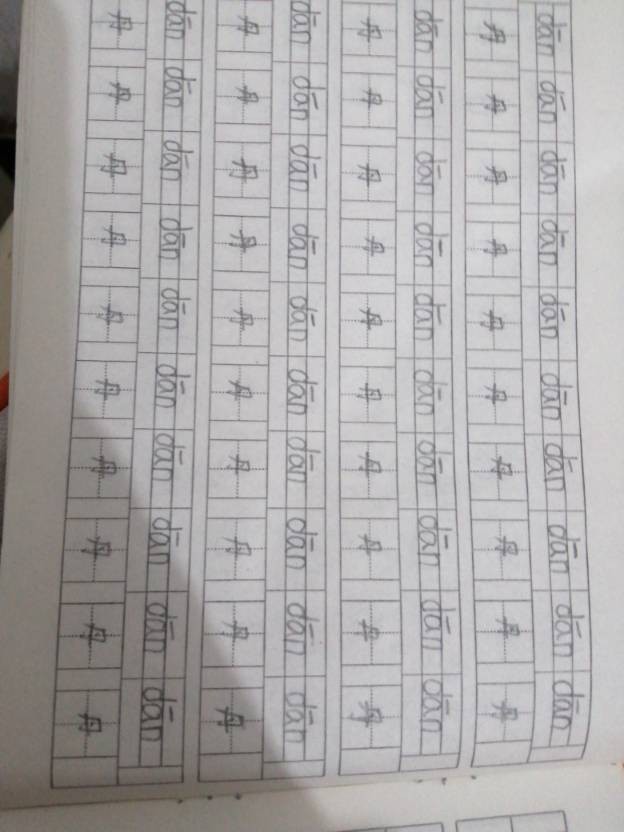 丹 dān 丹 dān 丹 dān 丹 dān
丹 dān 丹 dān 丹 dān 丹 dān
丹 dān 丹 dān 丹 dān 丹 dān
丹 dān 丹 dān 丹 dān 丹 dān
丹 dān 丹 dān 丹 dān 丹 dān
丹 dān 丹 dān 丹 dān 丹 dān
丹 dān 丹 dān 丹 dān 丹 dān
丹 dān 丹 dān 丹 dān 丹 dān
丹 dān 丹 dān 丹 dān 丹 dān
丹 dān 丹 dān 丹 dān 丹 dān